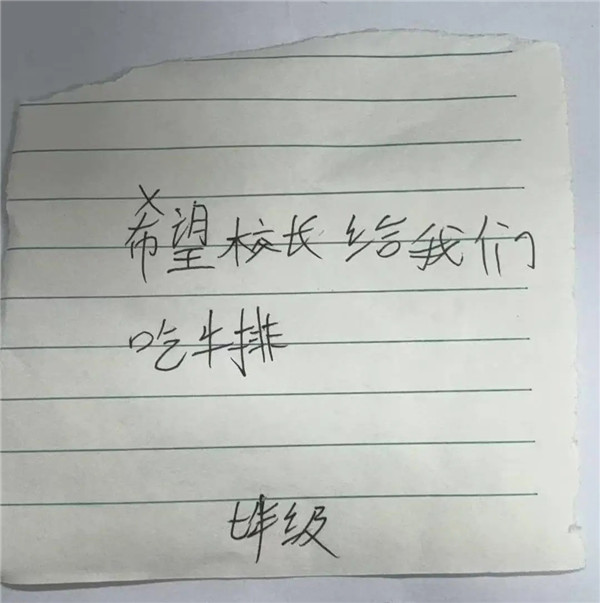 希望校长给我们
吃牛排
七年级